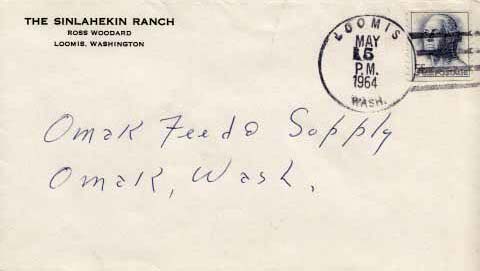 THE SINLAHEKIN RANCH
ROSS WOODARD
LOOMIS, WASHINGTON
LOOMIS
MAY
15
P.M.
1964
WASH.
POSTAGE
Omak Feeds Supply
Omak, Wash.